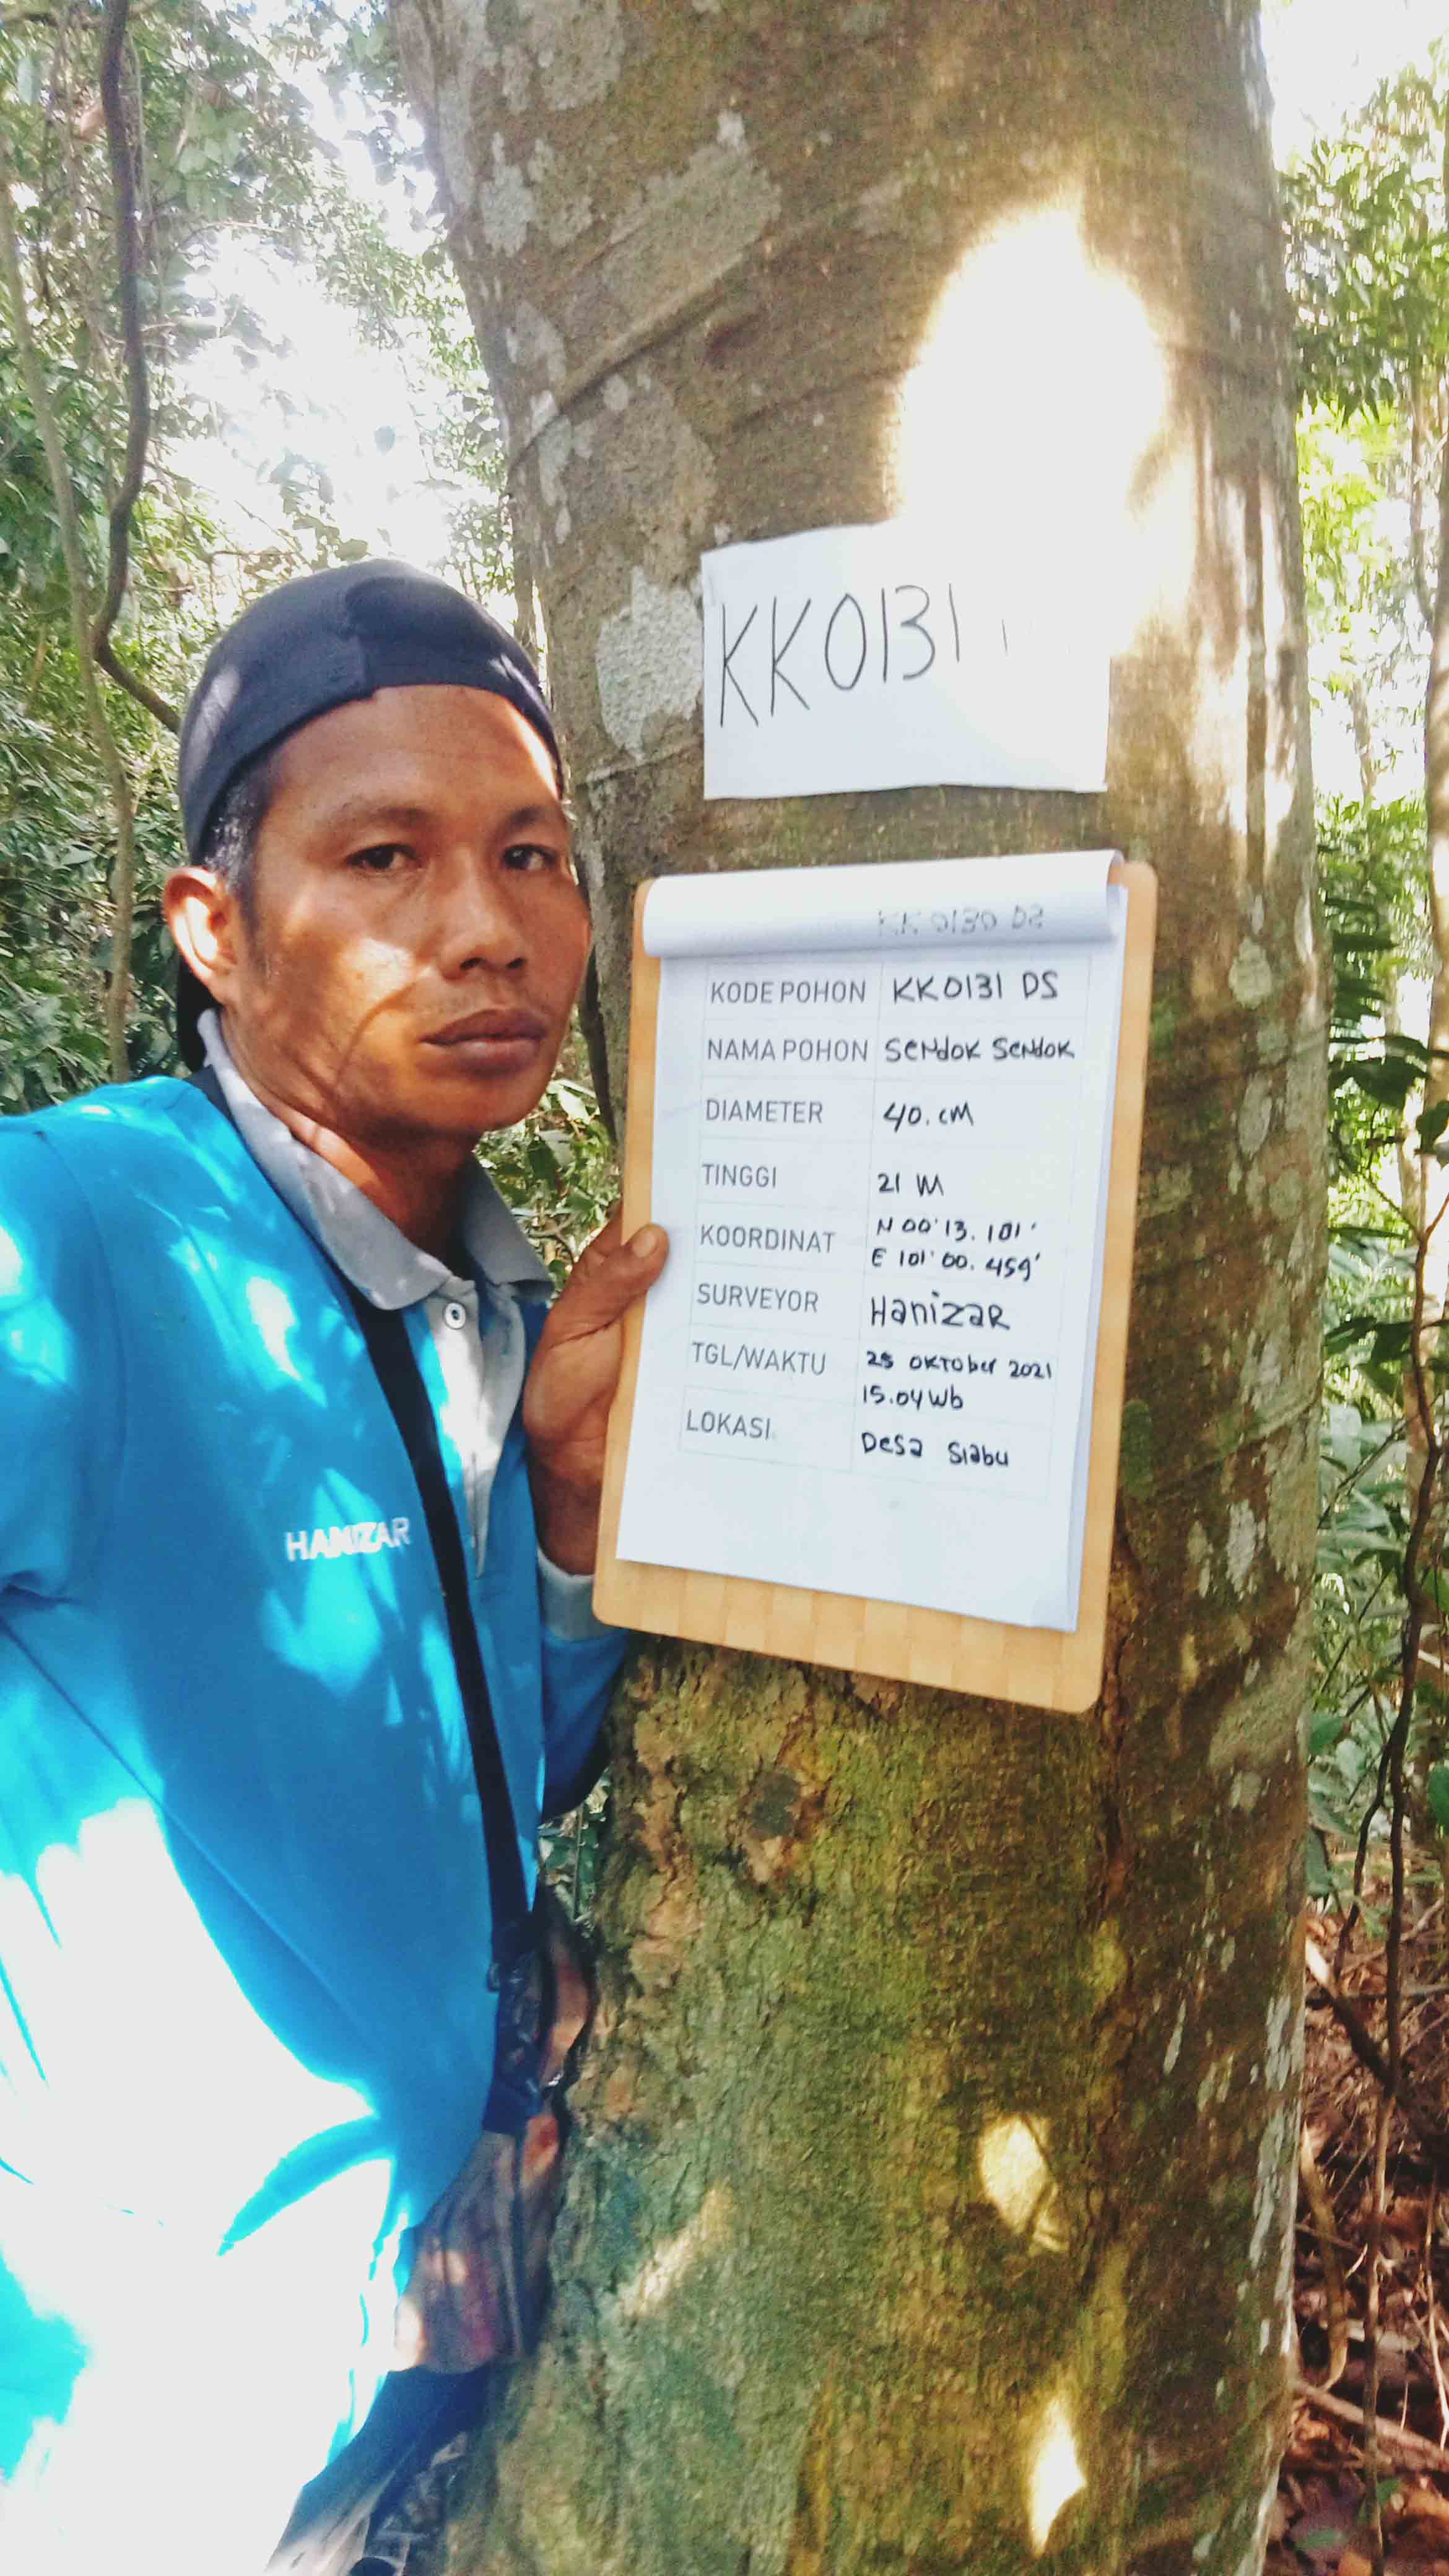 KK0131
KK 0130 DS
KODE POHON KK0131 DS
NAMA POHON SENdOK SENdOK
DIAMETER 40.cM
TINGGI 21 M
KOORDINAT N 00'13.101'
E 101'00.459'
SURVEYOR HanizaR
TGL/WAKTU 25 OKTober 2021
15.04 Wb
LOKASI Desa Siabu
HANIZAR